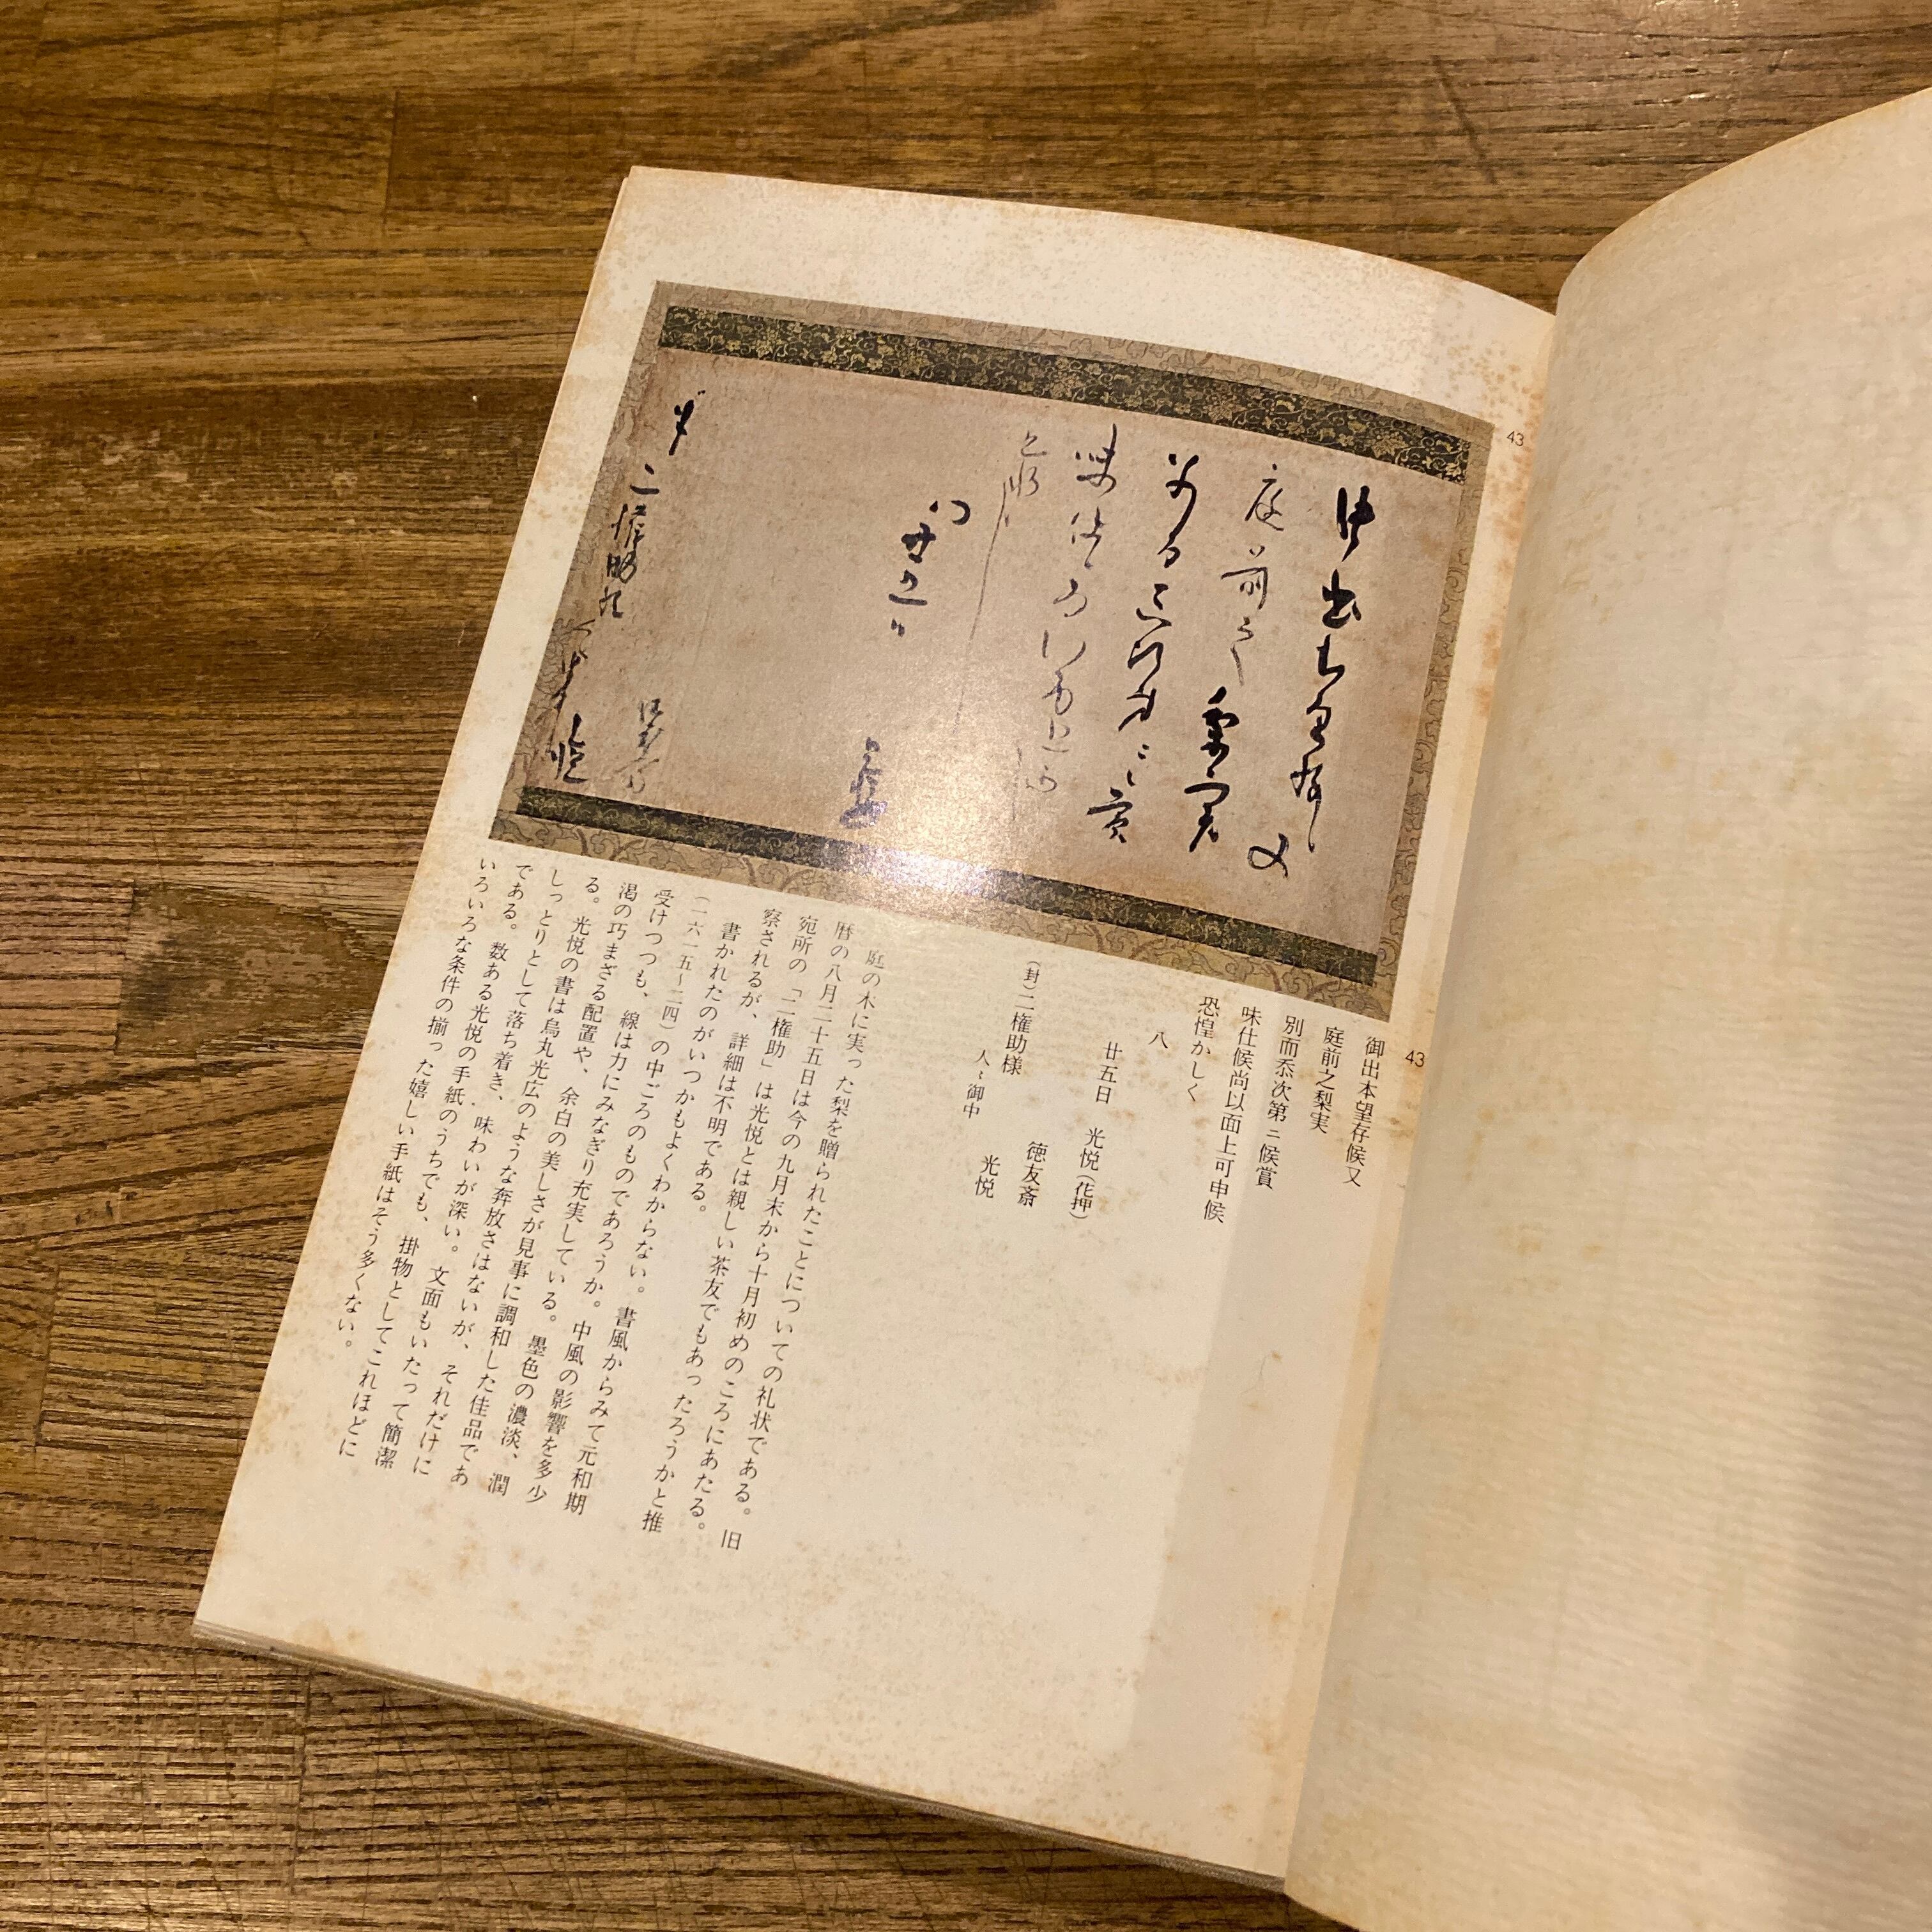 43
43
御出本望存候又
庭前之梨実
別而忝次第ニ候賞
味仕候尚以面上可申候
恐惶かしく
八
廿五日　光悦（花押）
徳友斎
（封）二権助様
人々御中　光悦
庭の木に実った梨を贈られたことについての礼状である。旧
暦の八月二十五日は今の九月末から十月初めのころにあたる。
宛所の「二権助」は光悦とは親しい茶友でもあったろうかと推
察されるが、詳細は不明である。
書かれたのがいつかもよくわからない。書風からみて元和期
（一六一五〜二四）の中ごろのものであろうか。中風の影響を多少
受けつつも、線は力にみなぎり充実している。墨色の濃淡、潤
渇の巧まざる配置や、余白の美しさが見事に調和した佳品であ
る。光悦の書は烏丸光広のような奔放さはないが、それだけに
しっとりとして落ち着き、味わいが深い。文面もいたって簡潔
である。数ある光悦の手紙のうちでも、掛物としてこれほどに
いろいろな条件の揃った嬉しい手紙はそう多くない。